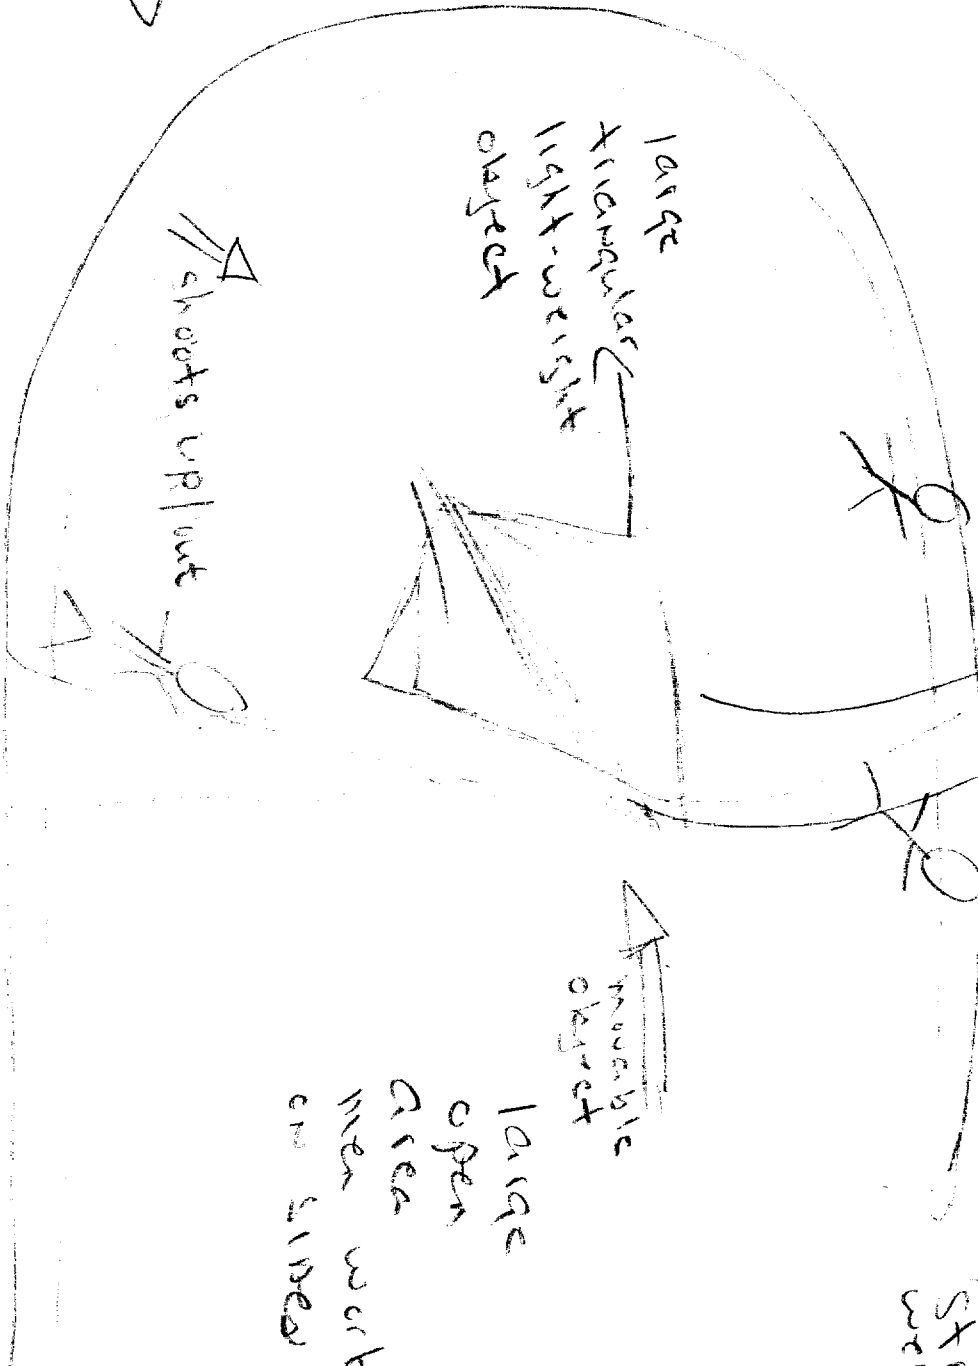 large
triangular
light-weight
object
shoots up/out
movable
object
large
open
area
men work
on sides